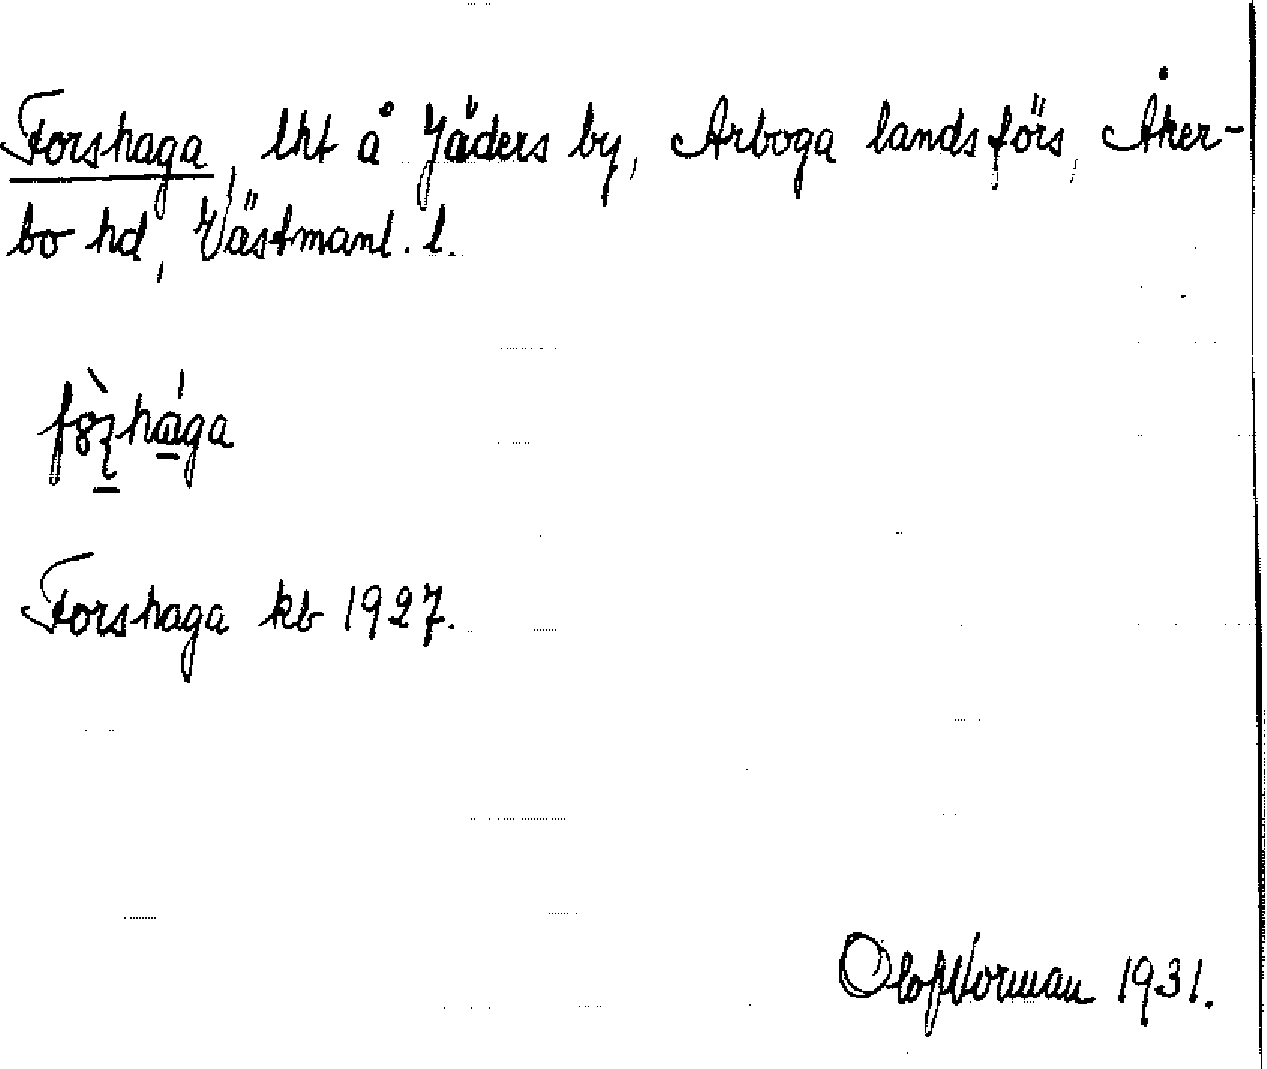 Forshaga, lht å Jäders by, Arboga landsförs, Åker-
bo hd, Västmanl. l.
Forshaga kb 1927.
Olof Norman 1931.